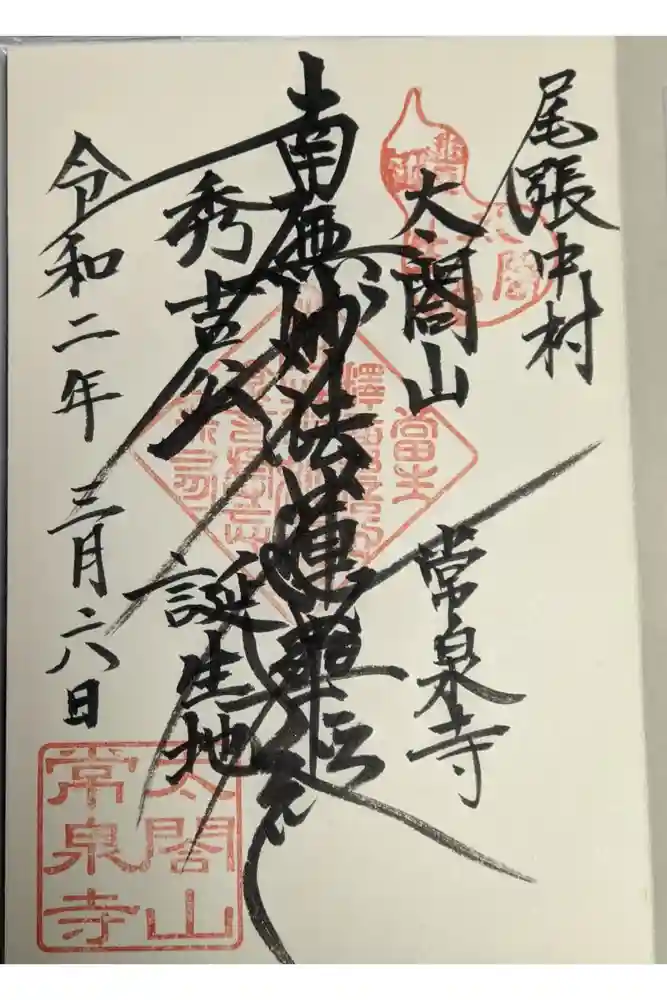 尾張中村
太閤山
常泉寺
南無妙法蓮華経
秀吉公
誕生地
令和二年 三月二八日
太閤山
常泉寺